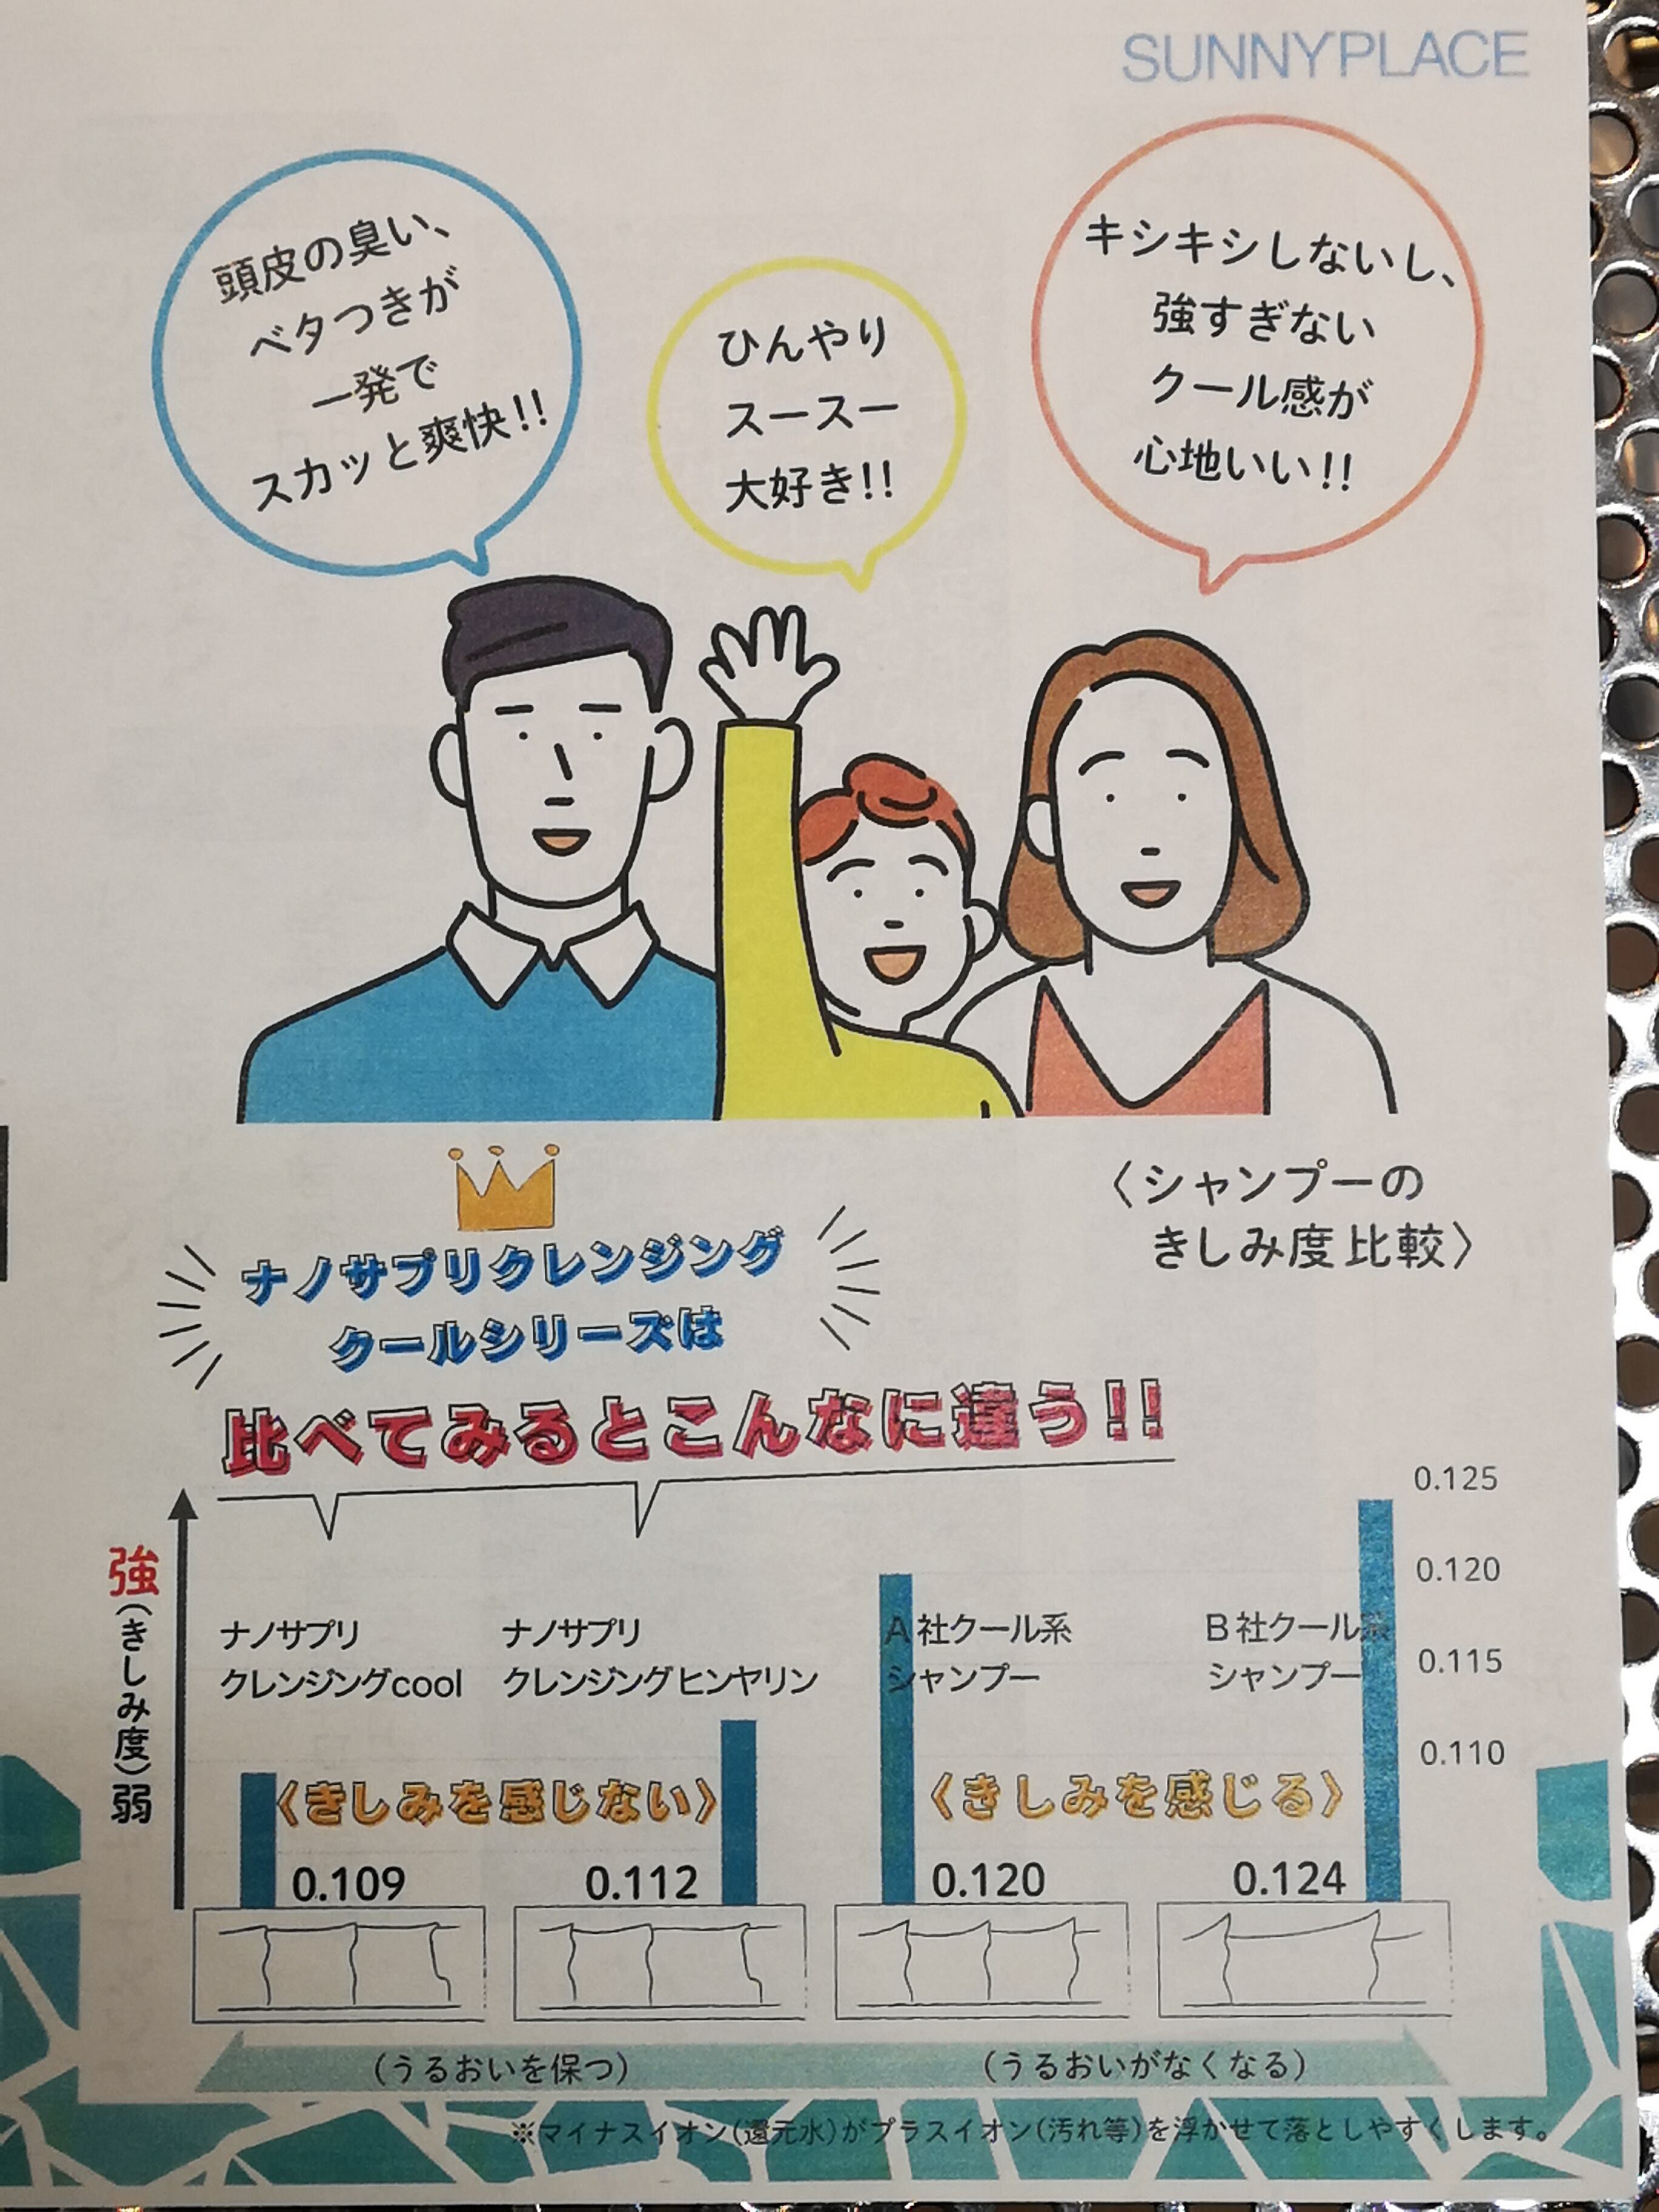 SUNNYPLACE
頭皮の臭い、
ベタつきが
一発で
スカッと爽快!!
ひんやり
スースー
大好き!!
キシキシしないし、
強すぎない
クール感が
心地いい!!
〈シャンプーの
きしみ度比較〉
ナノサプリクレンジング
クールシリーズは
比べてみるとこんなに違う!!
強(きしみ度)弱
ナノサプリ
クレンジングcool
ナノサプリ
クレンジングヒンヤリン
A社クール系
シャンプー
B社クール系
シャンプー
0.125
0.120
0.115
0.110
〈きしみを感じない〉
〈きしみを感じる〉
0.109
0.112
0.120
0.124
(うるおいを保つ)
(うるおいがなくなる)
※マイナスイオン(還元水)がプラスイオン(汚れ等)を浮かせて落としやすくします。